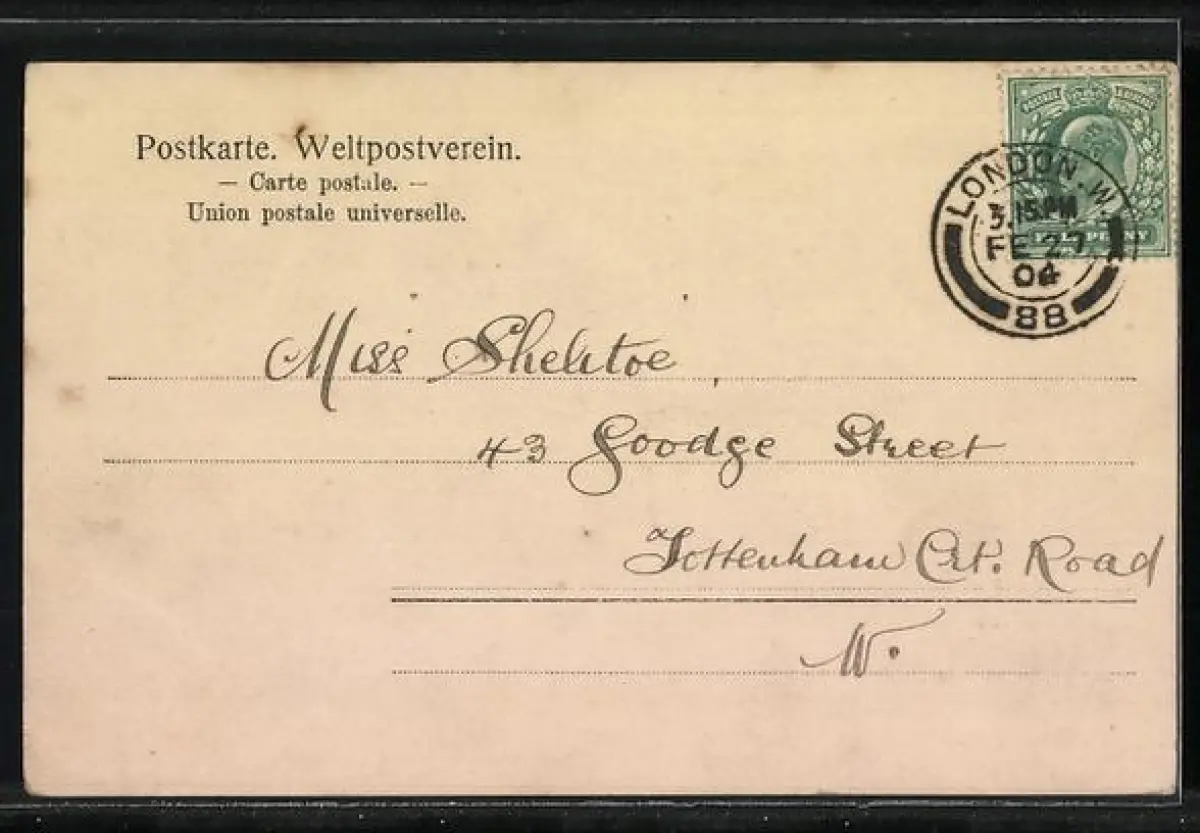 Postkarte. Weltpostverein.
— Carte postale. —
Union postale universelle.
LONDON. W.
3.15 PM
FE 27
04
88
Miss
43 Goodge Street
Tottenham Crt. Road
W.